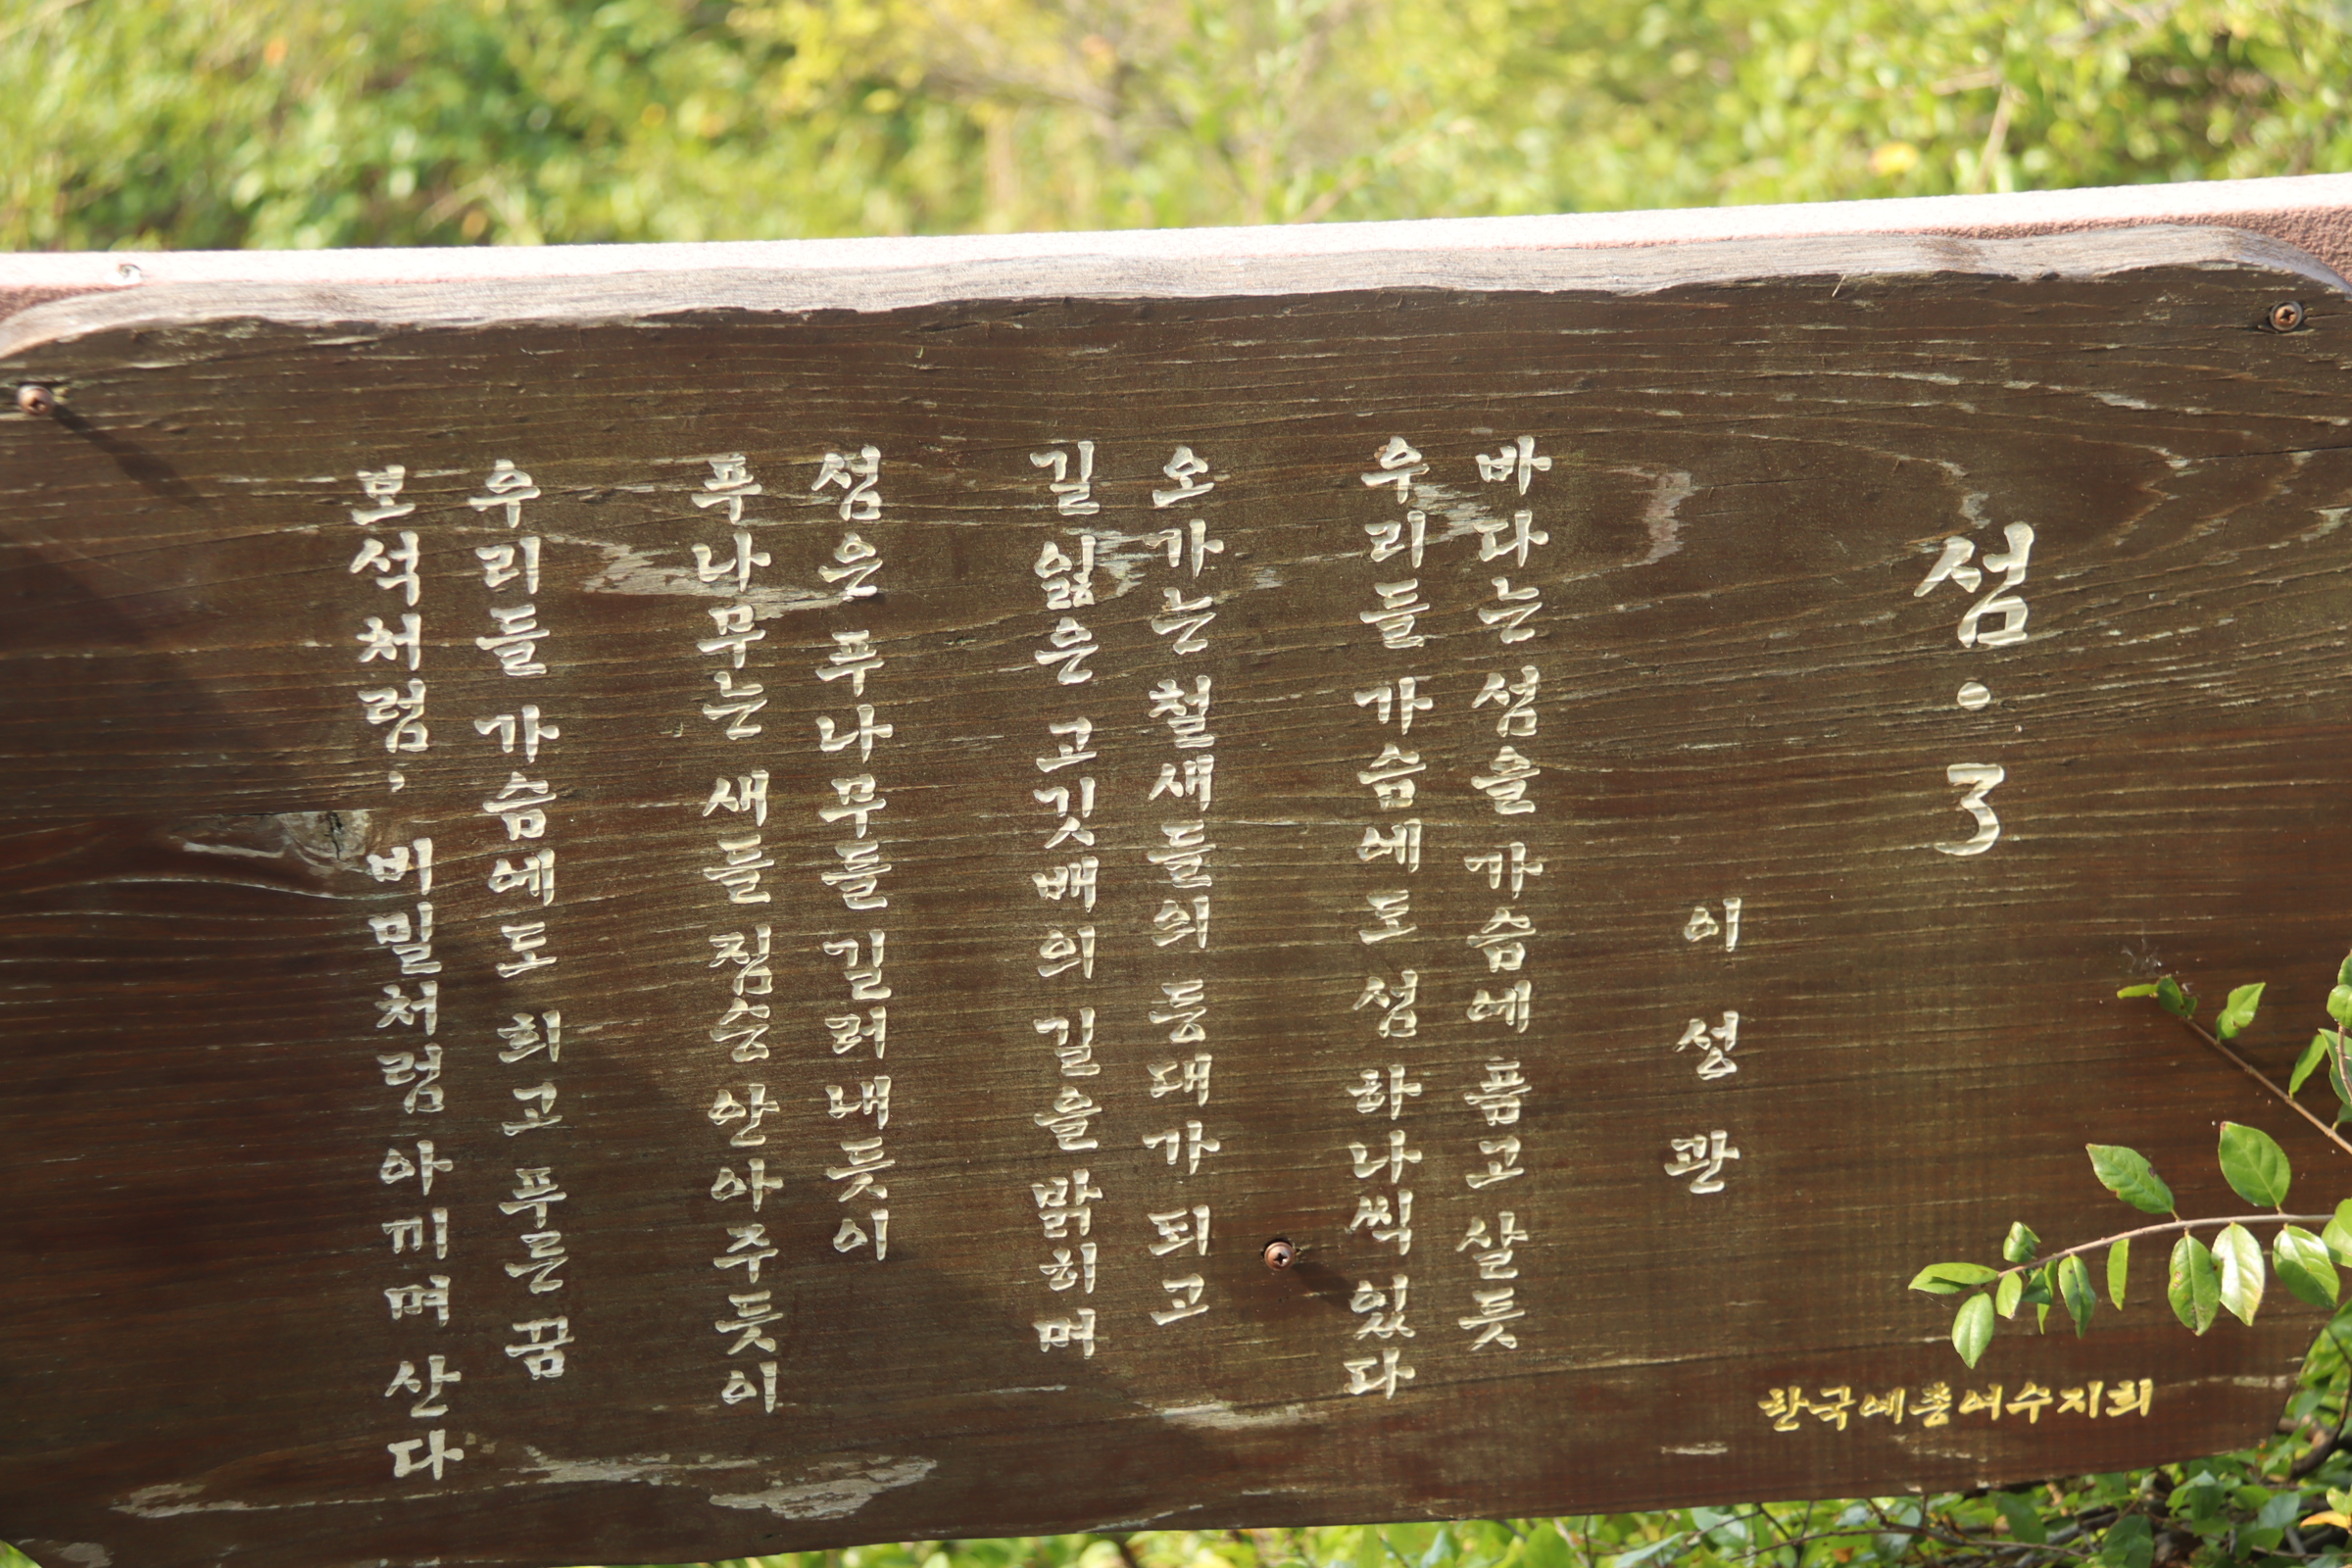 섬·3
이성관
바다는 섬을 가슴에 품고 살듯
우리들 가슴에도 섬 하나씩 있다
오가는 철새들의 등대가 되고
길 잃은 고깃배의 길을 밝히며
섬은 푸나무를 길러내듯이
푸나무는 새들 짐승 안아주듯이
우리들 가슴에도 희고 푸른 꿈
보석처럼, 비밀처럼 아끼며 산다
한국예총여수지회